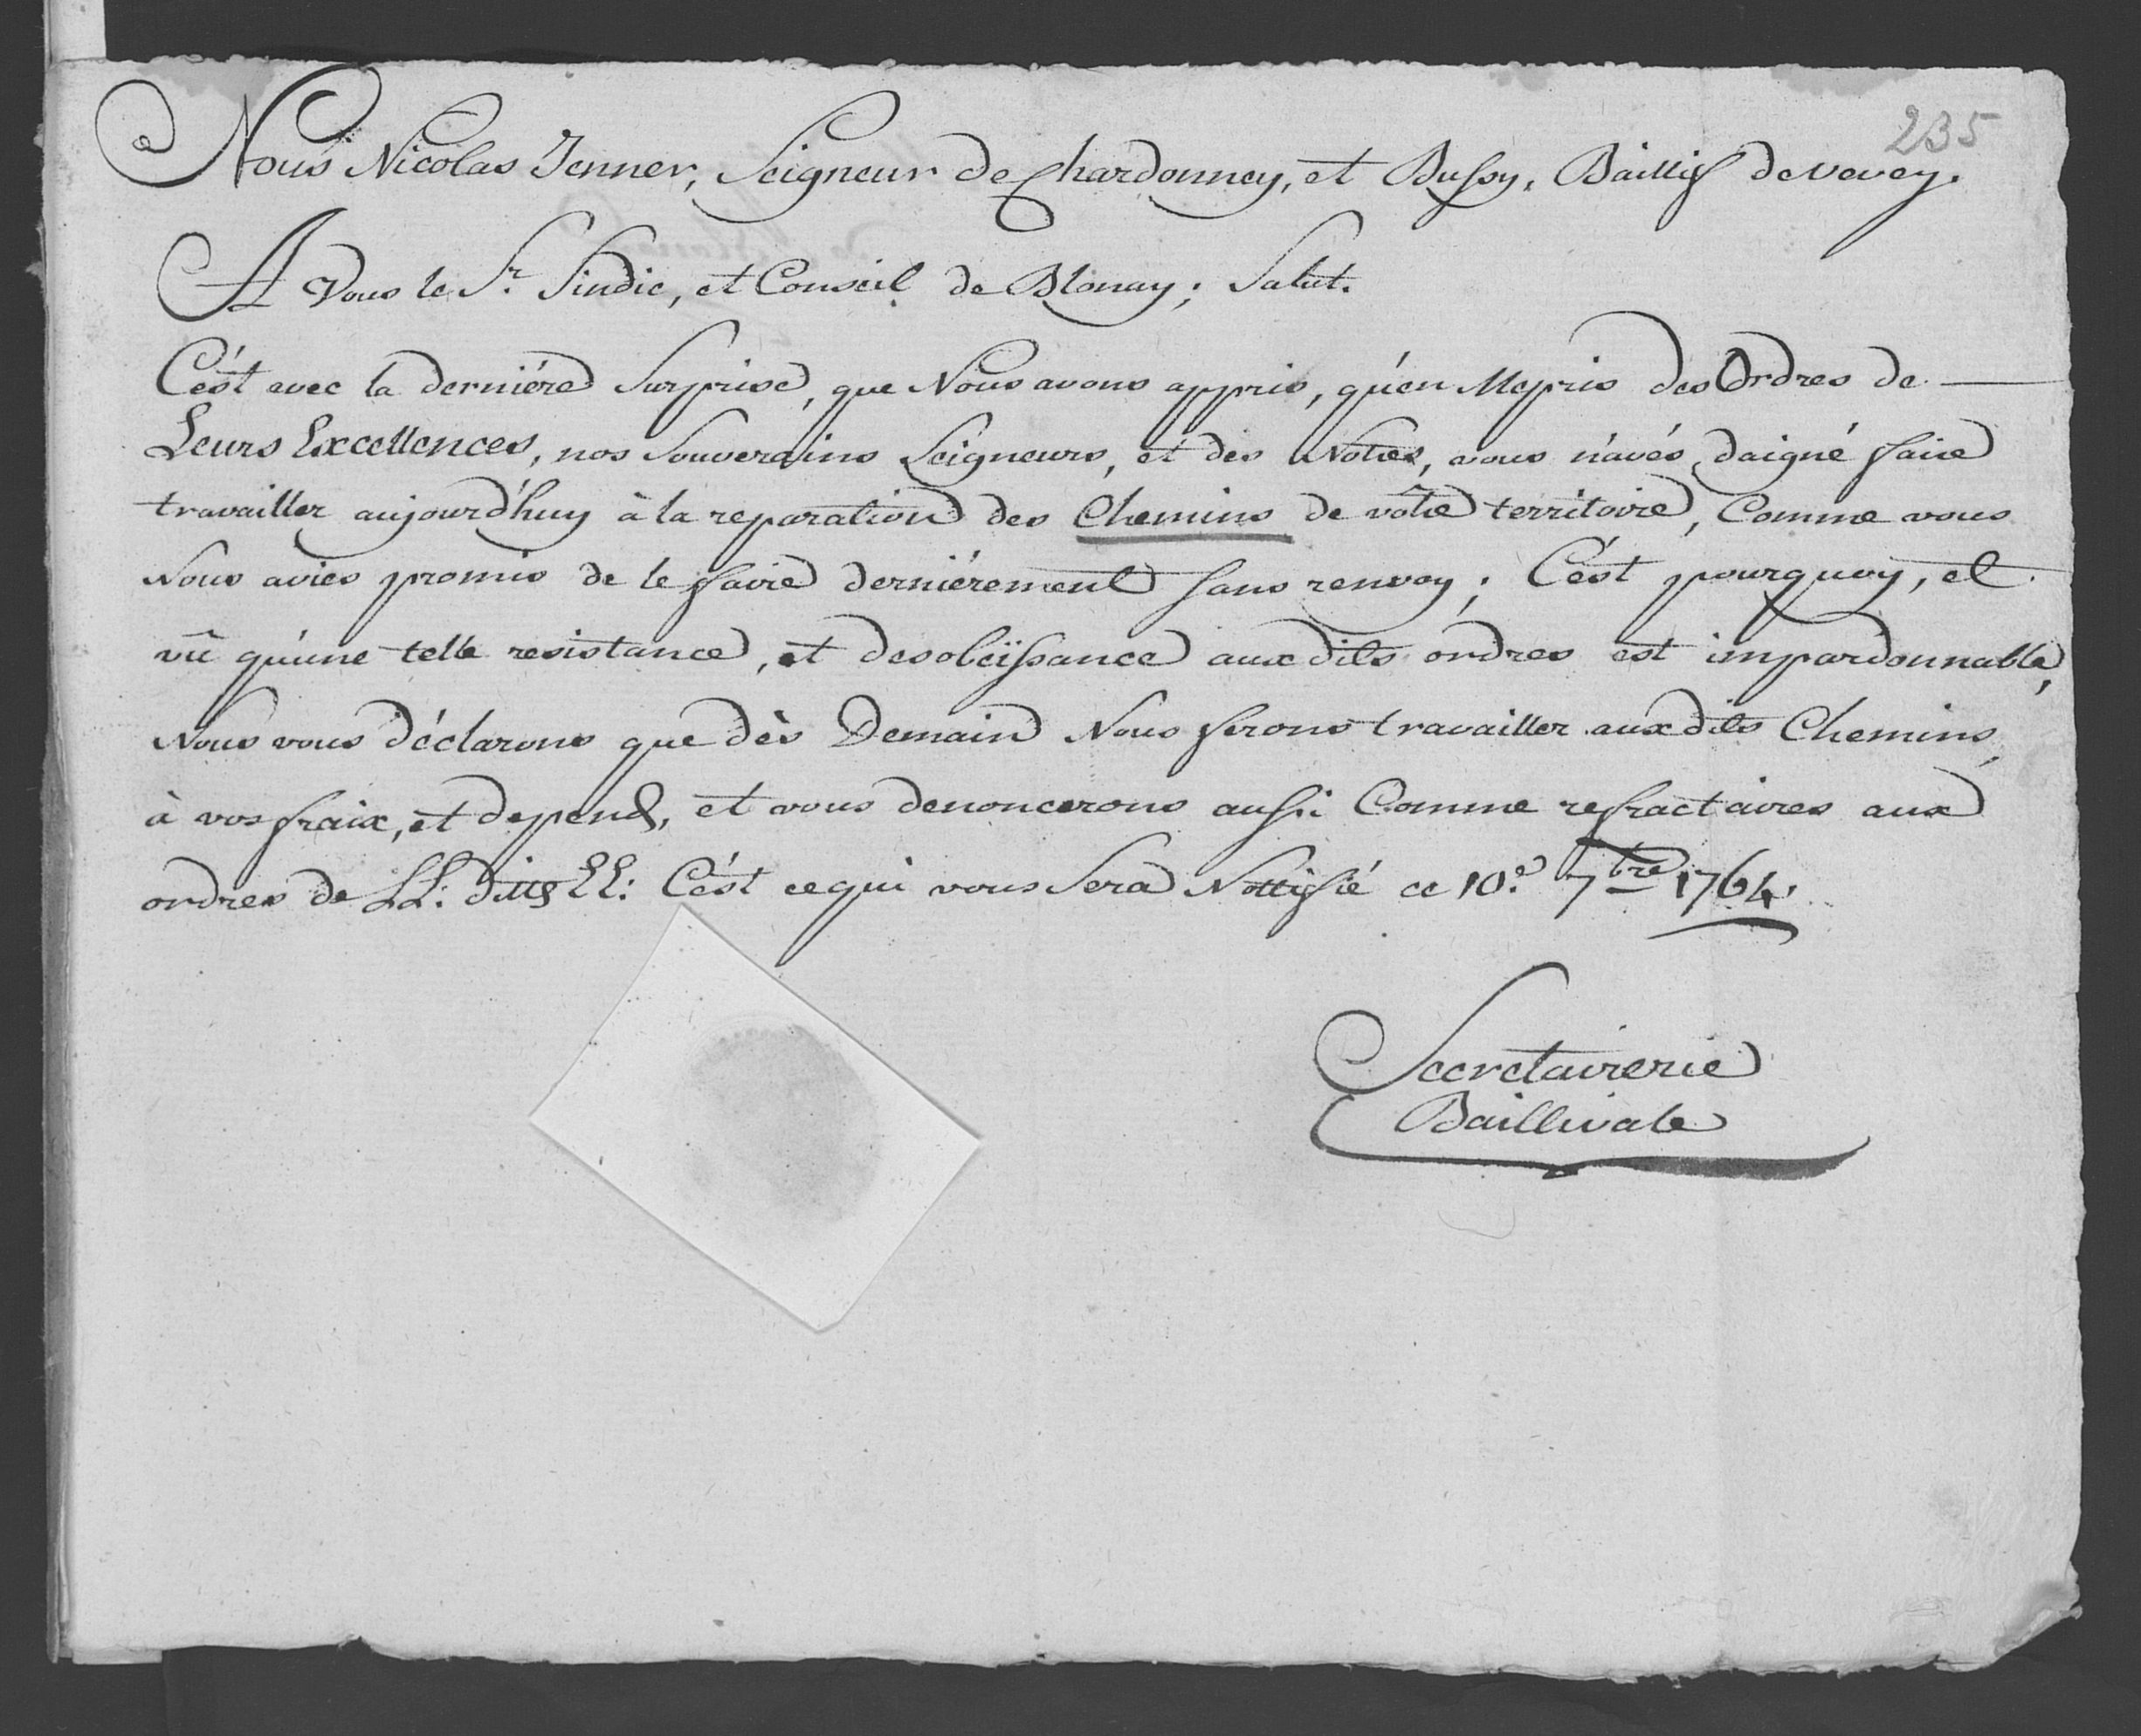 235
Nous Nicolas Jenner, Seigneur de Chardonney, et Bussy, Baillif de vevey.
A Vous le Sr. Sindic, et Conseil de Blonay; Salut.
C'ést avec la derniére Surprise, que Nous avons appris, qu'en Mepris des Ordres de
Leurs Excellences, nos Souverains Seigneurs, et des Notres, vous n'avés daigné faire
travailler aujourd'huy à la reparation des Chemins de vôtre territoire, Comme vous
Nous aviés promis de le faire derniérement sans renvoy; C'ést pourquoy, et
vû qu'une telle resistance, et desobeïssance aux dits ordres est impardonnable,
Nous vous déclarons que dès Demain Nous ferons travailler aux dits Chemins,
à vos fraix, et depend, et vous denoncerons aussi Comme refractaires aux
ordres de LL: dittes EE: C'ést ce qui vous Sera Nottifié ce 10.e 7bre 1764.
Secretairerie
Baillivale